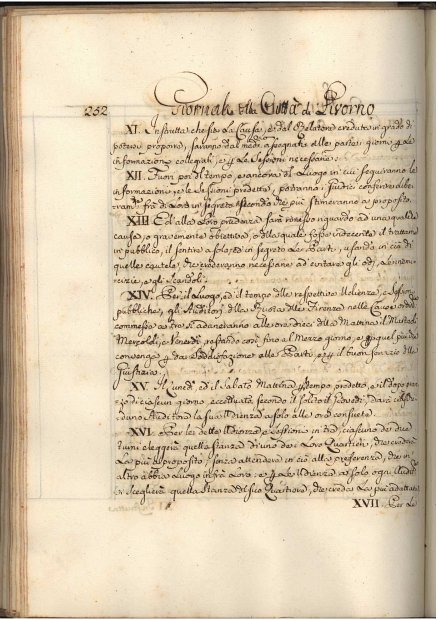 252 Giornale della Città di Livorno
XI. Instrutta che sia La Causa, e dal Relatore creduta in grado di
potersi proporre, saranno dal med.o assegnati alle parti i giorni per Le
informazioni collegiali, e per Le Sessioni necessarie.
XII. Fuori poi del tempo, e ancora del Luogo in cui seguiranno Le
informazioni, e Le sessioni predette, potranno i Giudici conferire, e
fra di Loro in segreto secondo che più stimeranno a proposito.
XIII. Ed alla Loro prudenza sarà rimesso riguardo ad una qualche
causa, o gravemente obiettiva, o della quale fosse indecente il trattarne
in pubblico, il sentire a solo, ed in segreto Le Parti, usando in ciò di
quelle cautele, che crederanno necessarie ad evitare gli odj, Le inimi-
cizie, e gli Scandoli.
XIV. Per il Luogo, ed il tempo delle respettive Udienze, e Sessioni
pubbliche, gli Auditori della Ruota di Firenze nelle Cause
commesse a tre si aduneranno alle ore dieci della Mattina il
Mercoldì, e Venerdì, restando così fino al Mezzo giorno, e per quel più che
convenga per dar Soddisfazione alle Parti, e per il buon servizio della
Giustizia.
XV. Il Lunedì, ed il Sabato Mattina per il tempo predetto, e il dopo pran-
zo di ciascun giorno, eccettuato secondo il solito il Giovedì, darà ciasche-
duno Auditore La sua Udienza a solo alle ore consuete.
XVI. Per Le dette Udienze, e sessioni in tre, ciascuno dei due
Turni eleggerà quella stanza di uno de i Loro Quartieri, che crederà
La più a proposito, senza attendere in ciò alla preferenza, che in
altro abbia Luogo infra Loro: e per Le Udienze a solo ogni
si sceglierà quella Stanza del suo Quartiere, che creda La più adattata.
XVII. Per Le